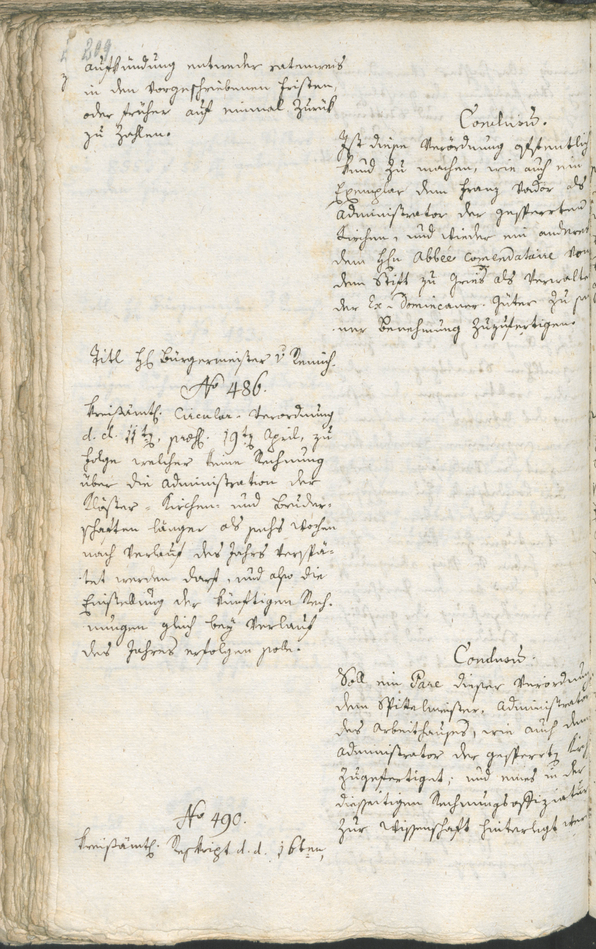 209
aufkündung entweder ratenweis
in den vorgeschriebenen fristen,
oder früher auf einmal zurük
zu zahlen.
Conclusũ.
Ist diese Verordnung öffentlich
kund zu machen, wie auch ein
Exemplar dem Franz Vador als
Administrator der gesperrten
Kirchen, und wieder ein anderes
dem Hħn Abbée comendataire von
dem Stift zu Gries als Verwalter
der Ex-Dominicaner-Güter zu sei
ner Benehmung zuzufertigen.
Titl Hħ Bürgermeister v
No 486.
Kreisämtl: Circular-Verordnung
d. d. 11tẽ, præs: 19tẽ April, zu
folge welcher keine Rechnung
über die Administration der
Klöster-Kirchen- und Bruder-
schaften länger als sechs Wochen
nach Verlauf des Jahrs verspä-
tet werden darf, und also die
Einstellung der künftigen Rech-
nungen gleich bey Verlauf
des Jahres erfolgen solle.
Conclusũ.
Soll ein Pare dieser Verordnung
dem Spittelmeister, Administrator
des Arbeithauses, wie auch dem
Administrator der gesperrtẽ Kirch
zugefertiget, und eines in der
diesseitigen Rechnungsoffiziatur
zur Wissenschaft hinterlegt wer
No 490.
Kreisämtl: Reskript d. d. 16ten,